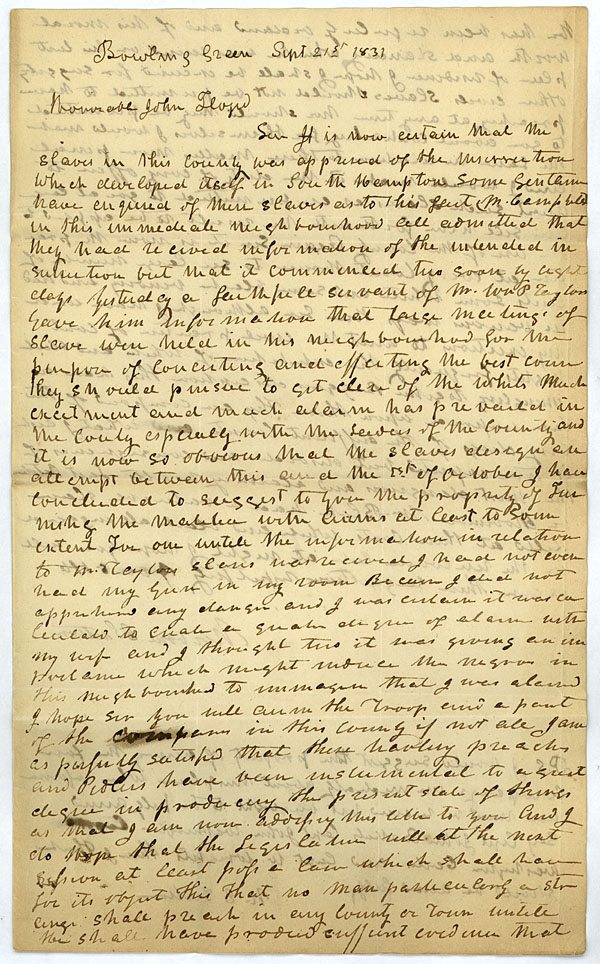 Bowling Green Sept 21st 1831
Honorable John Floyd
Sir It is now certain that the
slaves in this County was apprised of the insurrection
which developed itself in South Hampton Some Gentlem
have enquired of their slaves as to this fact Mr Campbell
in this immediate neighbourhood all admitted that
they had recived information of the intended in
surrection but that it commenced too soon by eight
days Yesterday a faithfull servant of Mr. Wm P Taylors
gave him information that large meetings of
slave were held in his neighbourhood for the
purpose of concerting and effecting the best cours
they should pursue to get clear of the whites Much
excitment and much alarm has prevaild in
the County espcially with the Ladies of the County and
it is now so obvious that the slaves design an
attempt between this and the 1st of October I have
concluded to suggest to you the propriety of Fur
nishing the Malitia with Arms at least to some
extent For one untill the information in relation
to Mr Taylors slaves was received I had not even
had my Gun in my room Because I did not
apprehend any danger and I was certain it was ca
lculatd to create a greate degree of alarm with
my wife and I thought too it was giving an im
portance which might induce the negros in
this neighbourhood to immagine that I was alarmd
I hope Sir you will arm the Troop and a part
of the companis in this County if not all I am
as perfictly satisfid that these travling preachers
and Pedlers have been instrumental to a great
degree in producing the present state of things
as that I am now addrssing this letter to you And I
do hope that the Legislature will at the next
session at least pass a Law which shall have
for its object this that no man particularly a str
anger shall preach in any County or Town untill
he shall have producd sufficient evidence that